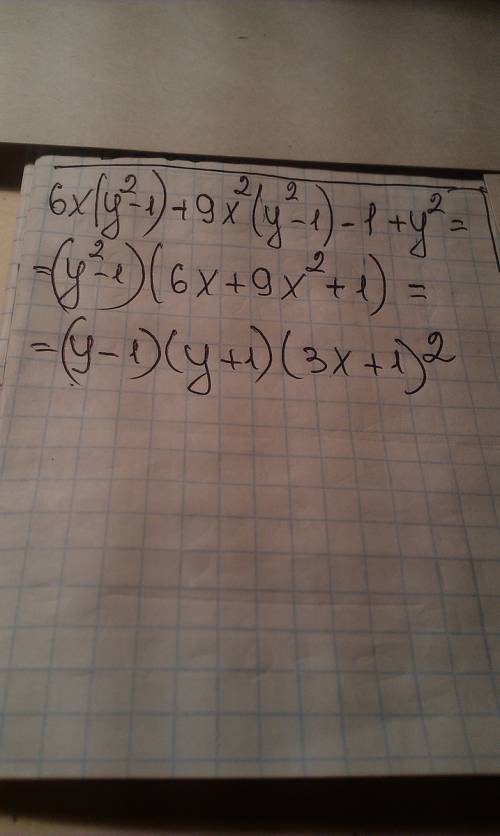 6x(y²-1)+9x²(y²-1)-1+y²=
=(y²-1)(6x+9x²+1)=
=(y-1)(y+1)(3x+1)²